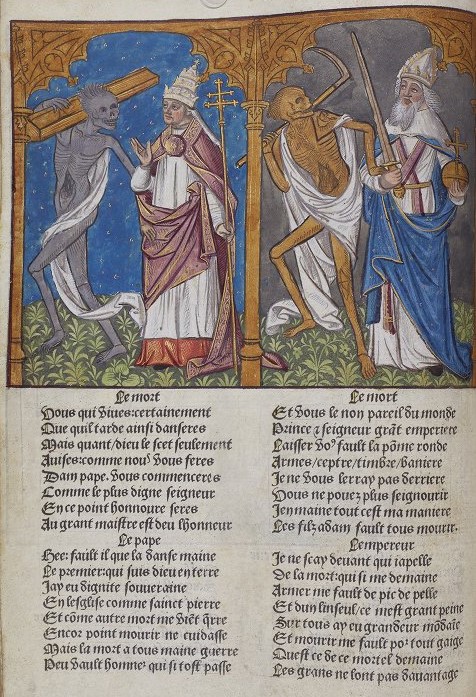 Le mort
Vous qui viues: certainement
Que quil tarde ainsi danseres
Mais quant/dieu le scet seulement
Auises: comme nou9 vous feres
Dam pape. vous commenceres
Comme le plus digne seigneur
En ce point honnoure seres
Au grant maistre est deu lhonneur
Le pape
Hee: fault il que la danse maine
Le premier: qui suis dieu en terre
Jay eu dignite souueraine
En lesglise comme sainct pierre
Et cõme autre mort me viẽt q̃rre
Encor point mourir ne cuidasse
Mais la mort a tous maine guerre
Peu vault honneᷣ qui si tost passe
Le mort
Et vous le non pareil du monde
Prince ⁊ seigneur grãt emperiere
Laisser vo9 fault la põme ronde
Armes/ceptre/timbre/baniere
Je ne vous lerray pas derriere
Vous ne pouez plus seignourir
Jen maine tout cest ma maniere
Les filz adam fault tous mourir.
Lempereur
Je ne scay deuant qui iapelle
De la mort: qui si me demaine
Armer me fault de pic de pelle
Et dun linseul/ce mest grant peine
Sur tous ay eu grandeur mõdaĩe
Et mourir me fault po2 tout gaige
Quest ce de ce mortel demaine
Les grans ne lont pas dauantage